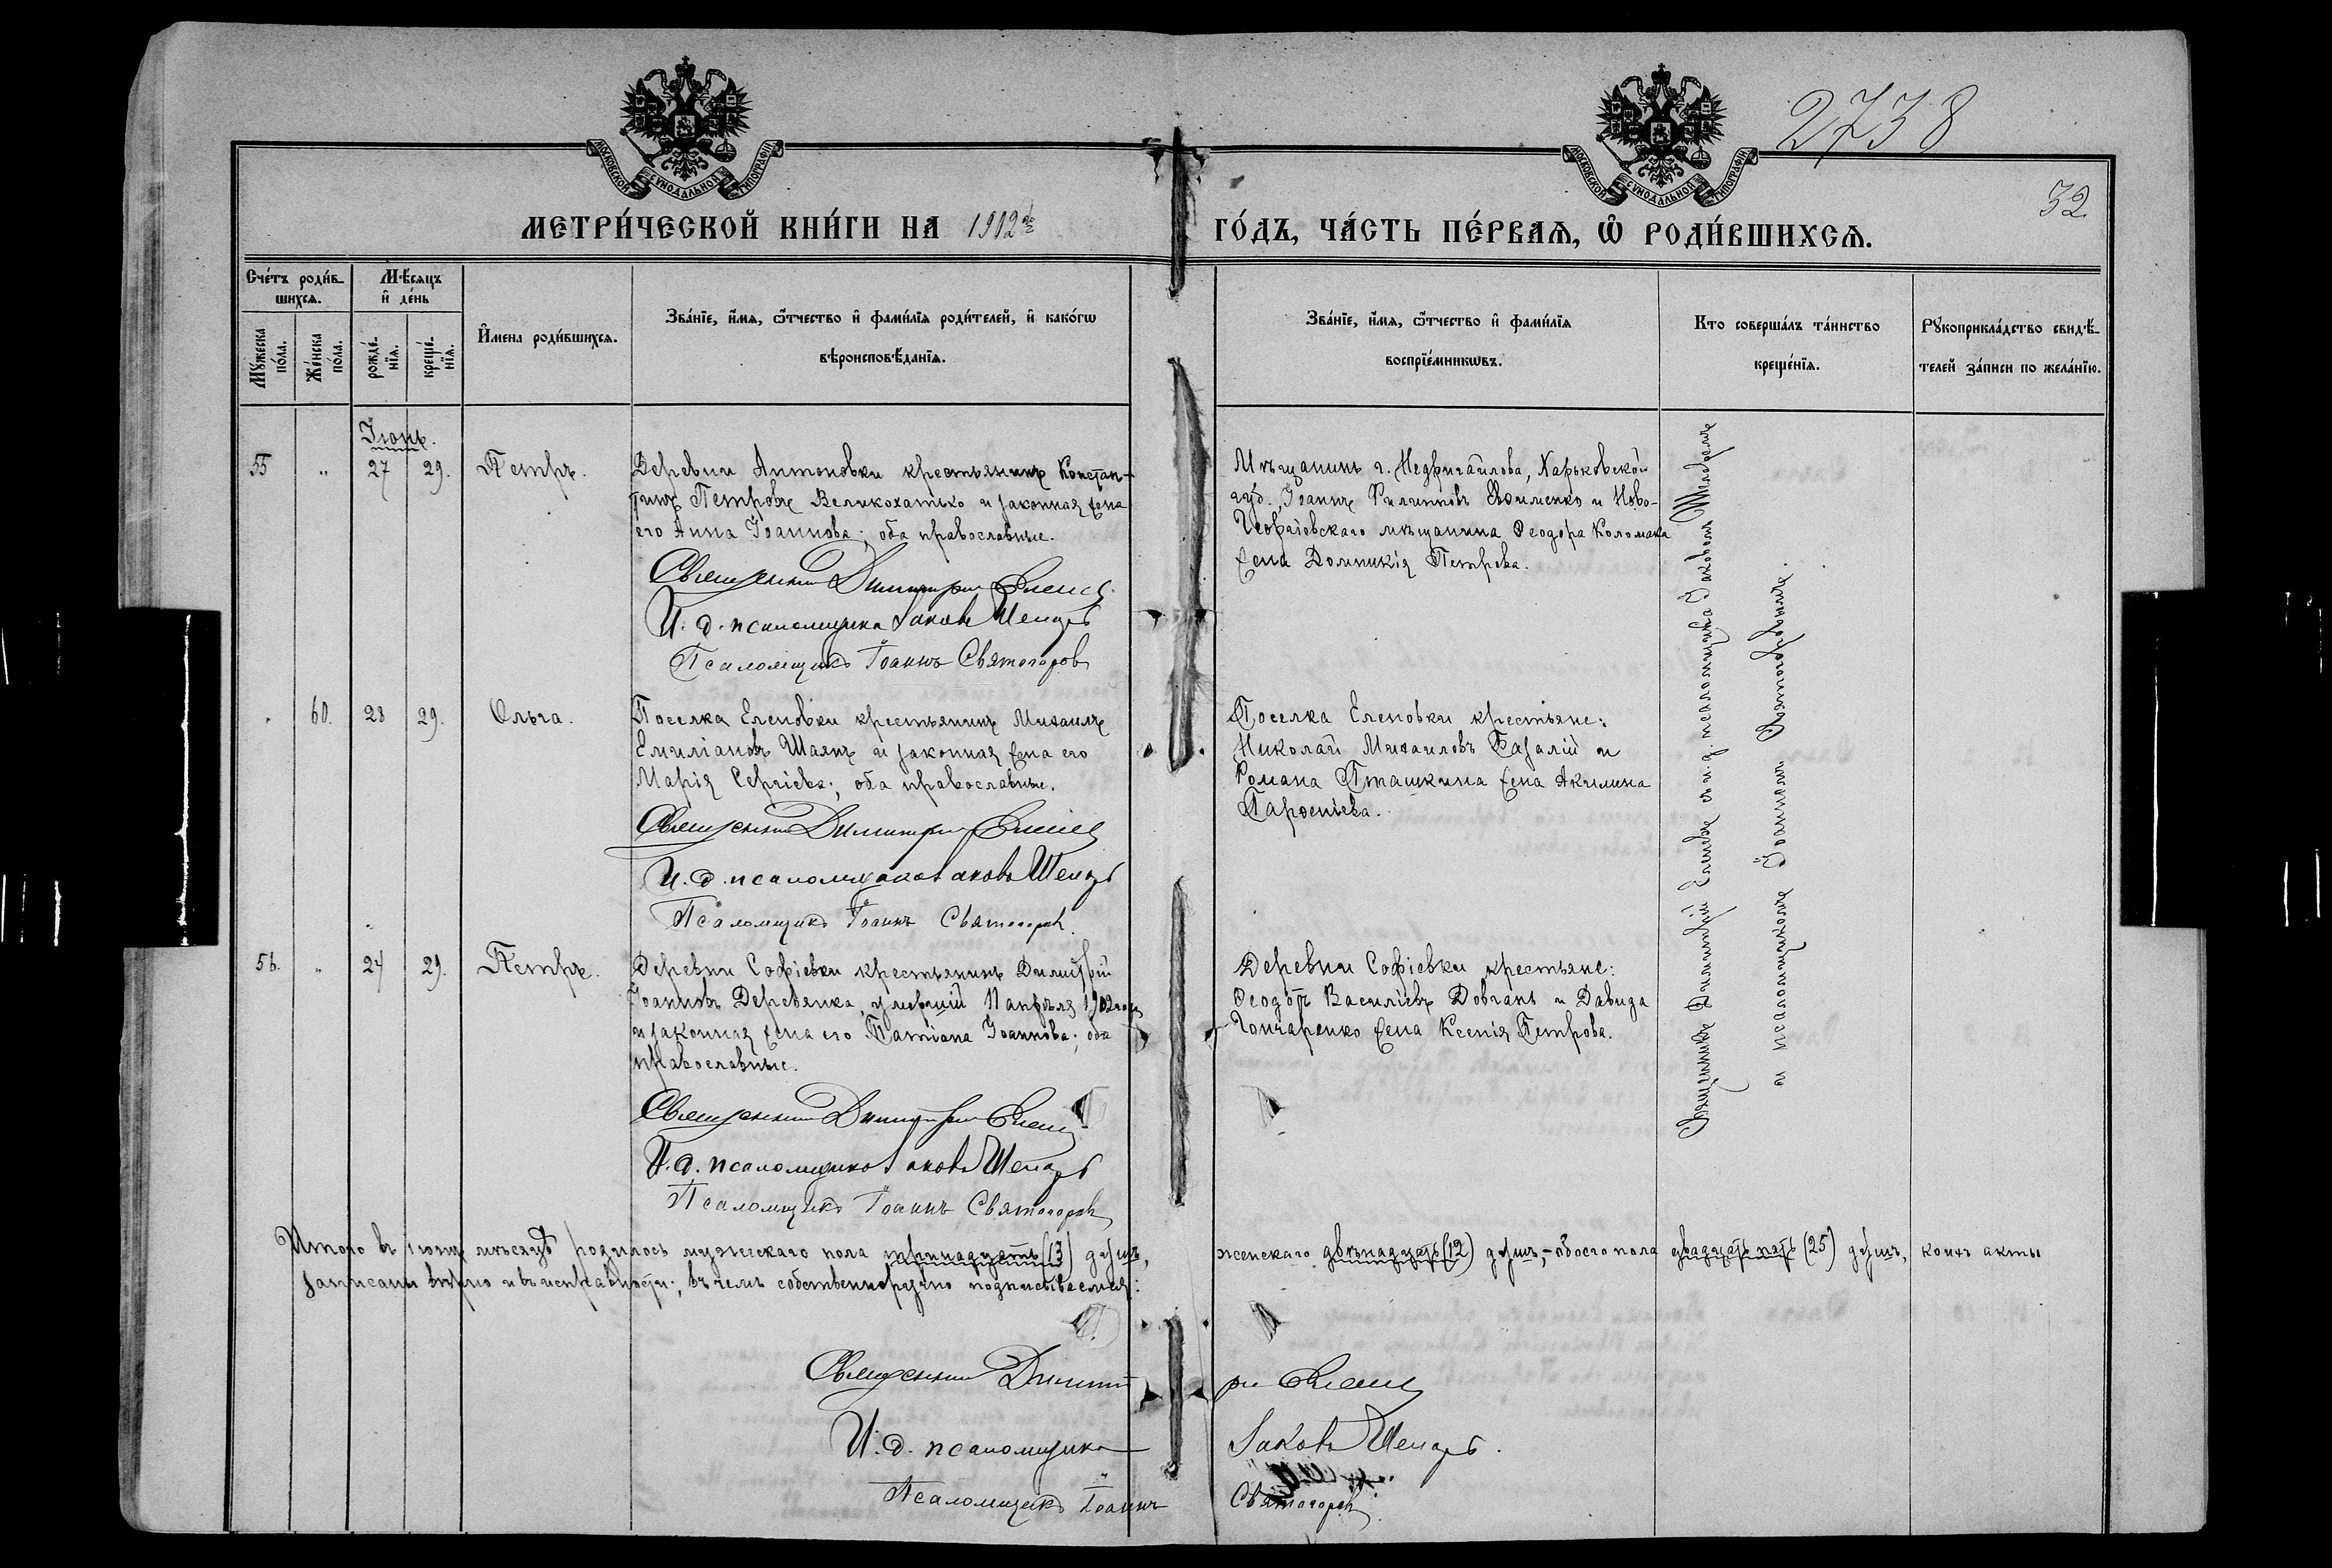 МОСКОВСКОЙ СУНОДАЛЬНОЙ ТИПОГРАФІИ
МОСКОВСКОЙ СУНОДАЛЬНОЙ ТИПОГРАФІИ
2738
32
МЕТРИ́ЧЕСКОЙ КНИ́ГИ НА 1902й
ГО́ДЪ, ЧА́СТЬ ПЕ́РВАѦ, Ѡ҆ РОДИ́ВШИХСѦ.
Сче́тъ роди́в-
шихсѧ.
Мѣ́сѧцъ
и҆ де́нь
Мꙋ́жеска по́ла.
Же́нска по́ла.
рожде́-нїѧ.
креще́-нїѧ.
И҆мена̀ роди́вшихсѧ.
Зва́нїе, и҆́мѧ, ѻ҆́тчество и҆ фами́лїѧ роди́телей, и҆ како́гѡ
вѣроисповѣ́данїѧ.
Зва́нїе, и҆́мѧ, ѻ҆́тчество и҆ фами́лїѧ
воспрїе́мникѡвъ.
Кто̀ соверша́лъ та́инство
креще́нїѧ.
Рꙋкоприкла́дство свидѣ́-
телей за́писи по жела́нїю.
Іюнь.
55 „ 27 29. Петръ.
Деревни Антоновки крестьянинъ Констан-
тинъ Петровъ Великохатько и законная жена
его Анна Іоаннова; оба православные.
Священникъ Димитрій Еленевъ
И. д. псаломщика Іаковъ Шепель
Псаломщикъ Іоаннъ Святогоровъ
Мѣщанинъ г. Недригайлова, Харьковской
губ., Іоаннъ Филипповъ Евфименко и Ново-
Георгіевскаго мѣщанина Ѳеодора Коломака
жена Домникія Петрова.
Священникъ Димитрій Еленевъ съ и. д. псаломщика Іаковомъ Шепелемъ
и псаломщикомъ Іоанномъ Святогоровымъ.
„ 60. 28 29. Ольга.
Поселка Еленовки крестьянинъ Михаилъ
Емиліановъ Шаянъ и законная жена его
Марія Сергіева; оба православные.
Священникъ Димитрій Еленевъ
И. д. псаломщика Іаковъ Шепель
Псаломщикъ Іоаннъ Святогоровъ.
Поселка Еленовки крестьяне:
Николай Михаиловъ Багалій и
Романа Пташкина жена Акилина
Парѳеніева.
56. „ 24 29. Петръ.
Деревни Софіевки крестьянинъ Димитрій
Іоанновъ Деревянка, умершій 11 апрѣля 1902 года
и законная жена его Татіана Іоаннова; оба
православные.
Священникъ Димитрій Еленевъ
И. д. псаломщика Іаковъ Шепель
Псаломщикъ Іоаннъ Святогоровъ
Деревни Софіевки крестьяне:
Ѳеодотъ Василіевъ Довгань и Давида
Гончаренко жена Ксенія Петрова.
Итого въ іюнѣ мѣсяцѣ родилось мужескаго пола тринадцать (13) душъ, женскаго двѣнадцать (12) душъ,- обоего пола двадцать пять (25) душъ, коихъ акты
записаны вѣрно и въ исправности; въ чемъ собственноручно подписываемся:
Священникъ Димитрій Еленевъ
И. д. псаломщика Іаковъ Шепель.
Псаломщикъ Іоаннъ Святогоровъ.